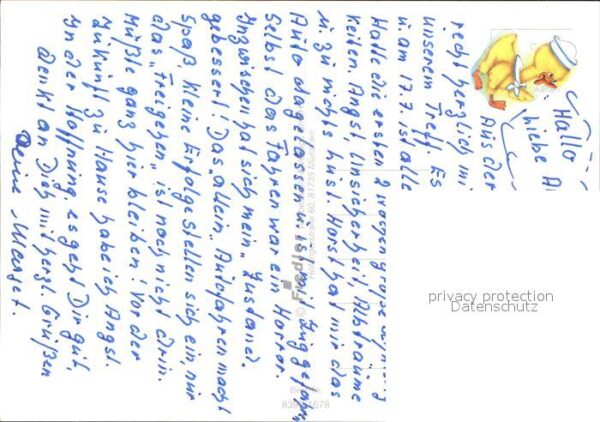 Hallo
liebe A
Aus der
recht herzlich mi
unserem Treff. Es
u. am 17.7. ist alle
Hatte die ersten 2 Wochen große
keiten. Angst, Unsicherheit, Albträume
u. zu nichts Lust. Horst hat mir das
Auto dagelassen u. ist mit Zug gefahren,
Selbst das Fahren war ein Horror.
Inzwischen hat sich mein „Zustand"
gebessert! Das „allein" Autofahren macht
Spaß, kleine Erfolge stellen sich ein, nur
das „Freigehen" ist noch nicht drin.
Müßte ganz hier bleiben! Vor der
Zukunft zu Hause habe ich Angst.
In der Hoffnung, es geht Dir gut,
denkt an Dich mit herzl. Grüßen
Deine
© Fredler
81735 München
privacy protection
Datenschutz